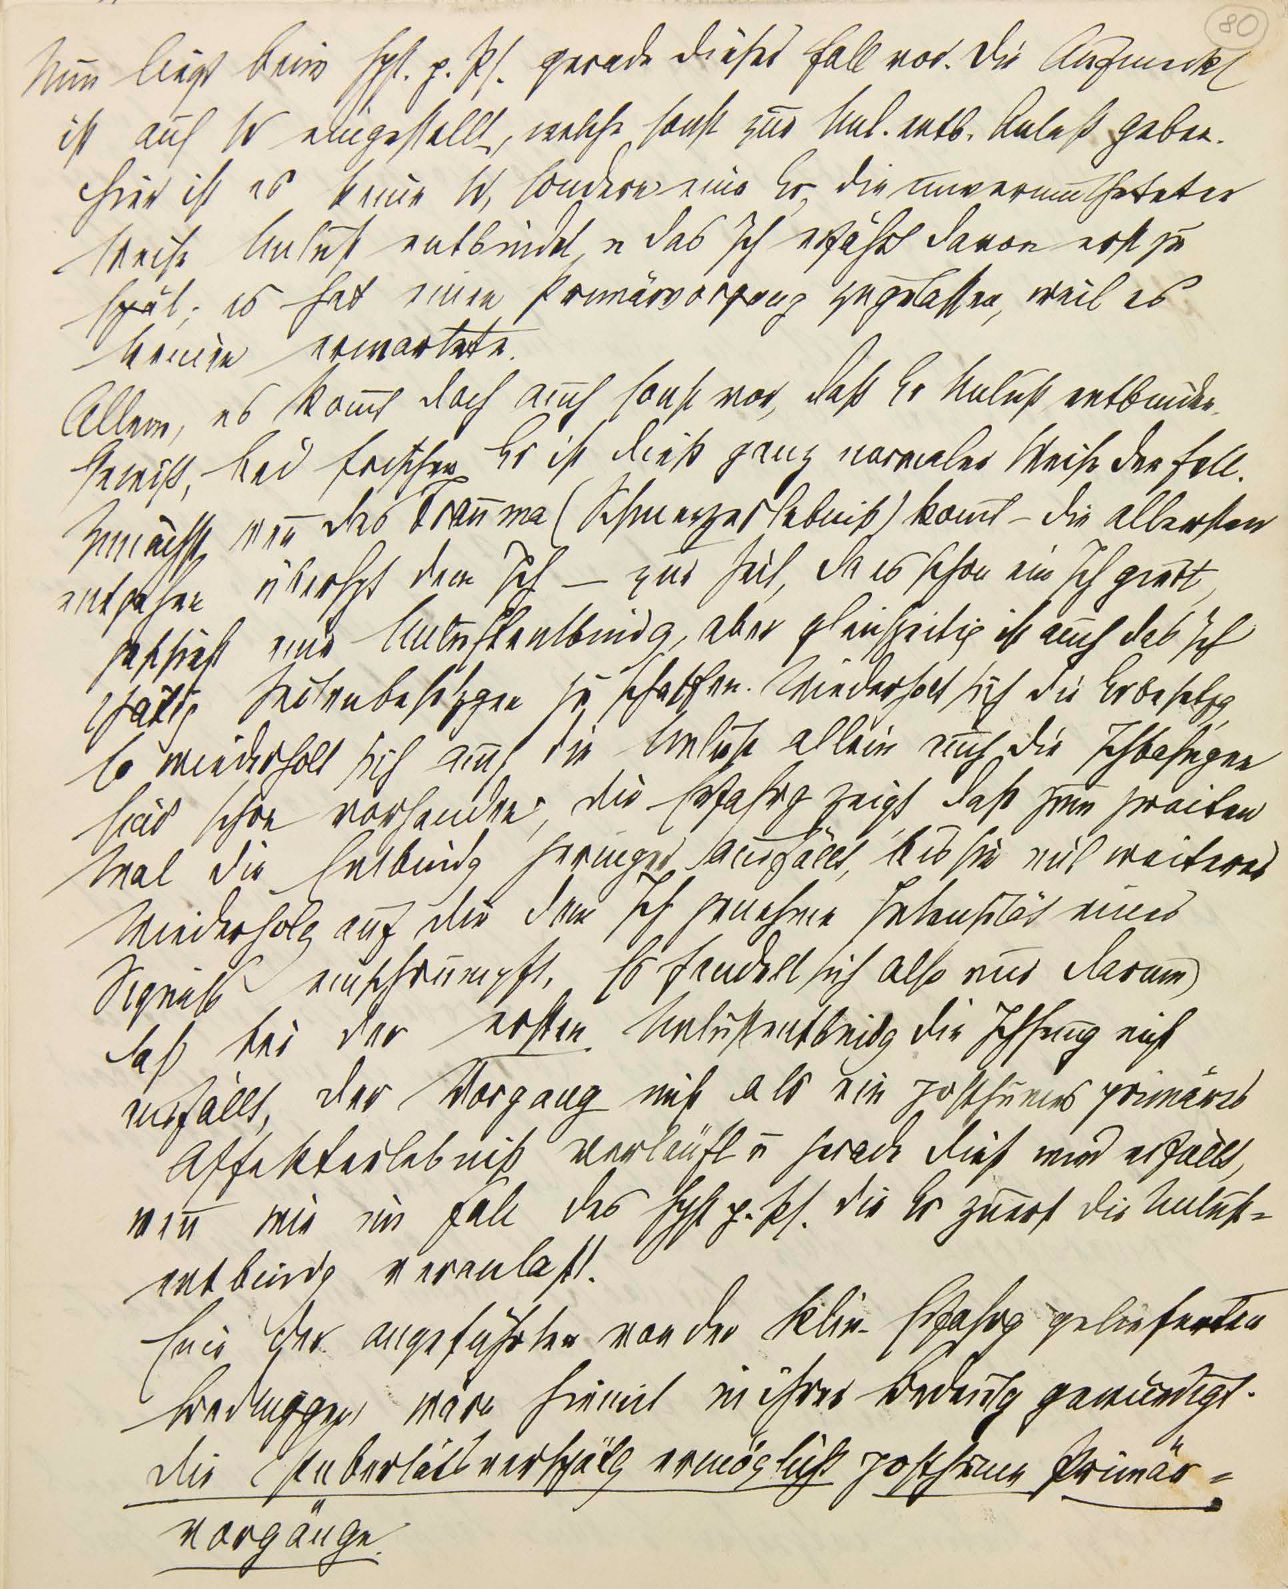 80
Nun liegt beim hyst. p. ps. gerade dieser Fall vor. Die Aufmerkst
ist auf W eingestellt, welche sonst zur Unl. entb. Anlaß geben.
Hier ist es keine W, sondern eine Er, die unvermutheter
Weise Unlust entbindet, u das Ich erfährt davon erst zu
spät; es hat einen Primärvorgang zugelassen, weil es
keinen erwartete.
Allein, es kom̄t doch auch sonst vor, daß Er Unlust entbinden.
Gewiß, bei frischen Er ist dieß ganz normaler Weise der Fall.
Zunächst, wen̄ das Trauma (Schmerzerlebniß) kom̄t – die allerersten
entgehen überhpt dem Ich – zur Zeit, da es schon ein Ich giebt,
geschieht eine Unlustentbindg, aber gleichzeitig ist auch das Ich
thätig Seitenbesetzgen zu schaffen. Wiederholt sich die Erbesetzg,
so wiederholt sich auch die Unlust allein auch die Ichbahngen
sind schon vorhanden; die Erfahrg zeigt, daß zum zweiten
Mal die Entbindg geringer ausfällt, bis sie mit weiterer
Wiederholg auf die dem Ich genehme Intensität eines
Signals einschrumpft. Es handelt sich also nur darum
daß bei der ersten Unlustentbindg die Ichhemung nicht
ausfällt, der Vorgang nicht als ein posthumes primäres
Affekterlebniß verläuft u gerade dieß wird erfüllt,
wen̄ wie im Fall des hyst p. ps. die Er zuerst die Unlust=
entbindg veranlaßt.
Eine der angeführten von der klin. Erfahrg gelieferten
Bedingngen wäre hiemit in ihrer Bedeutg gewürdigt.
Die Pubertätsverspätg ermöglicht posthume Primär=
vorgänge.